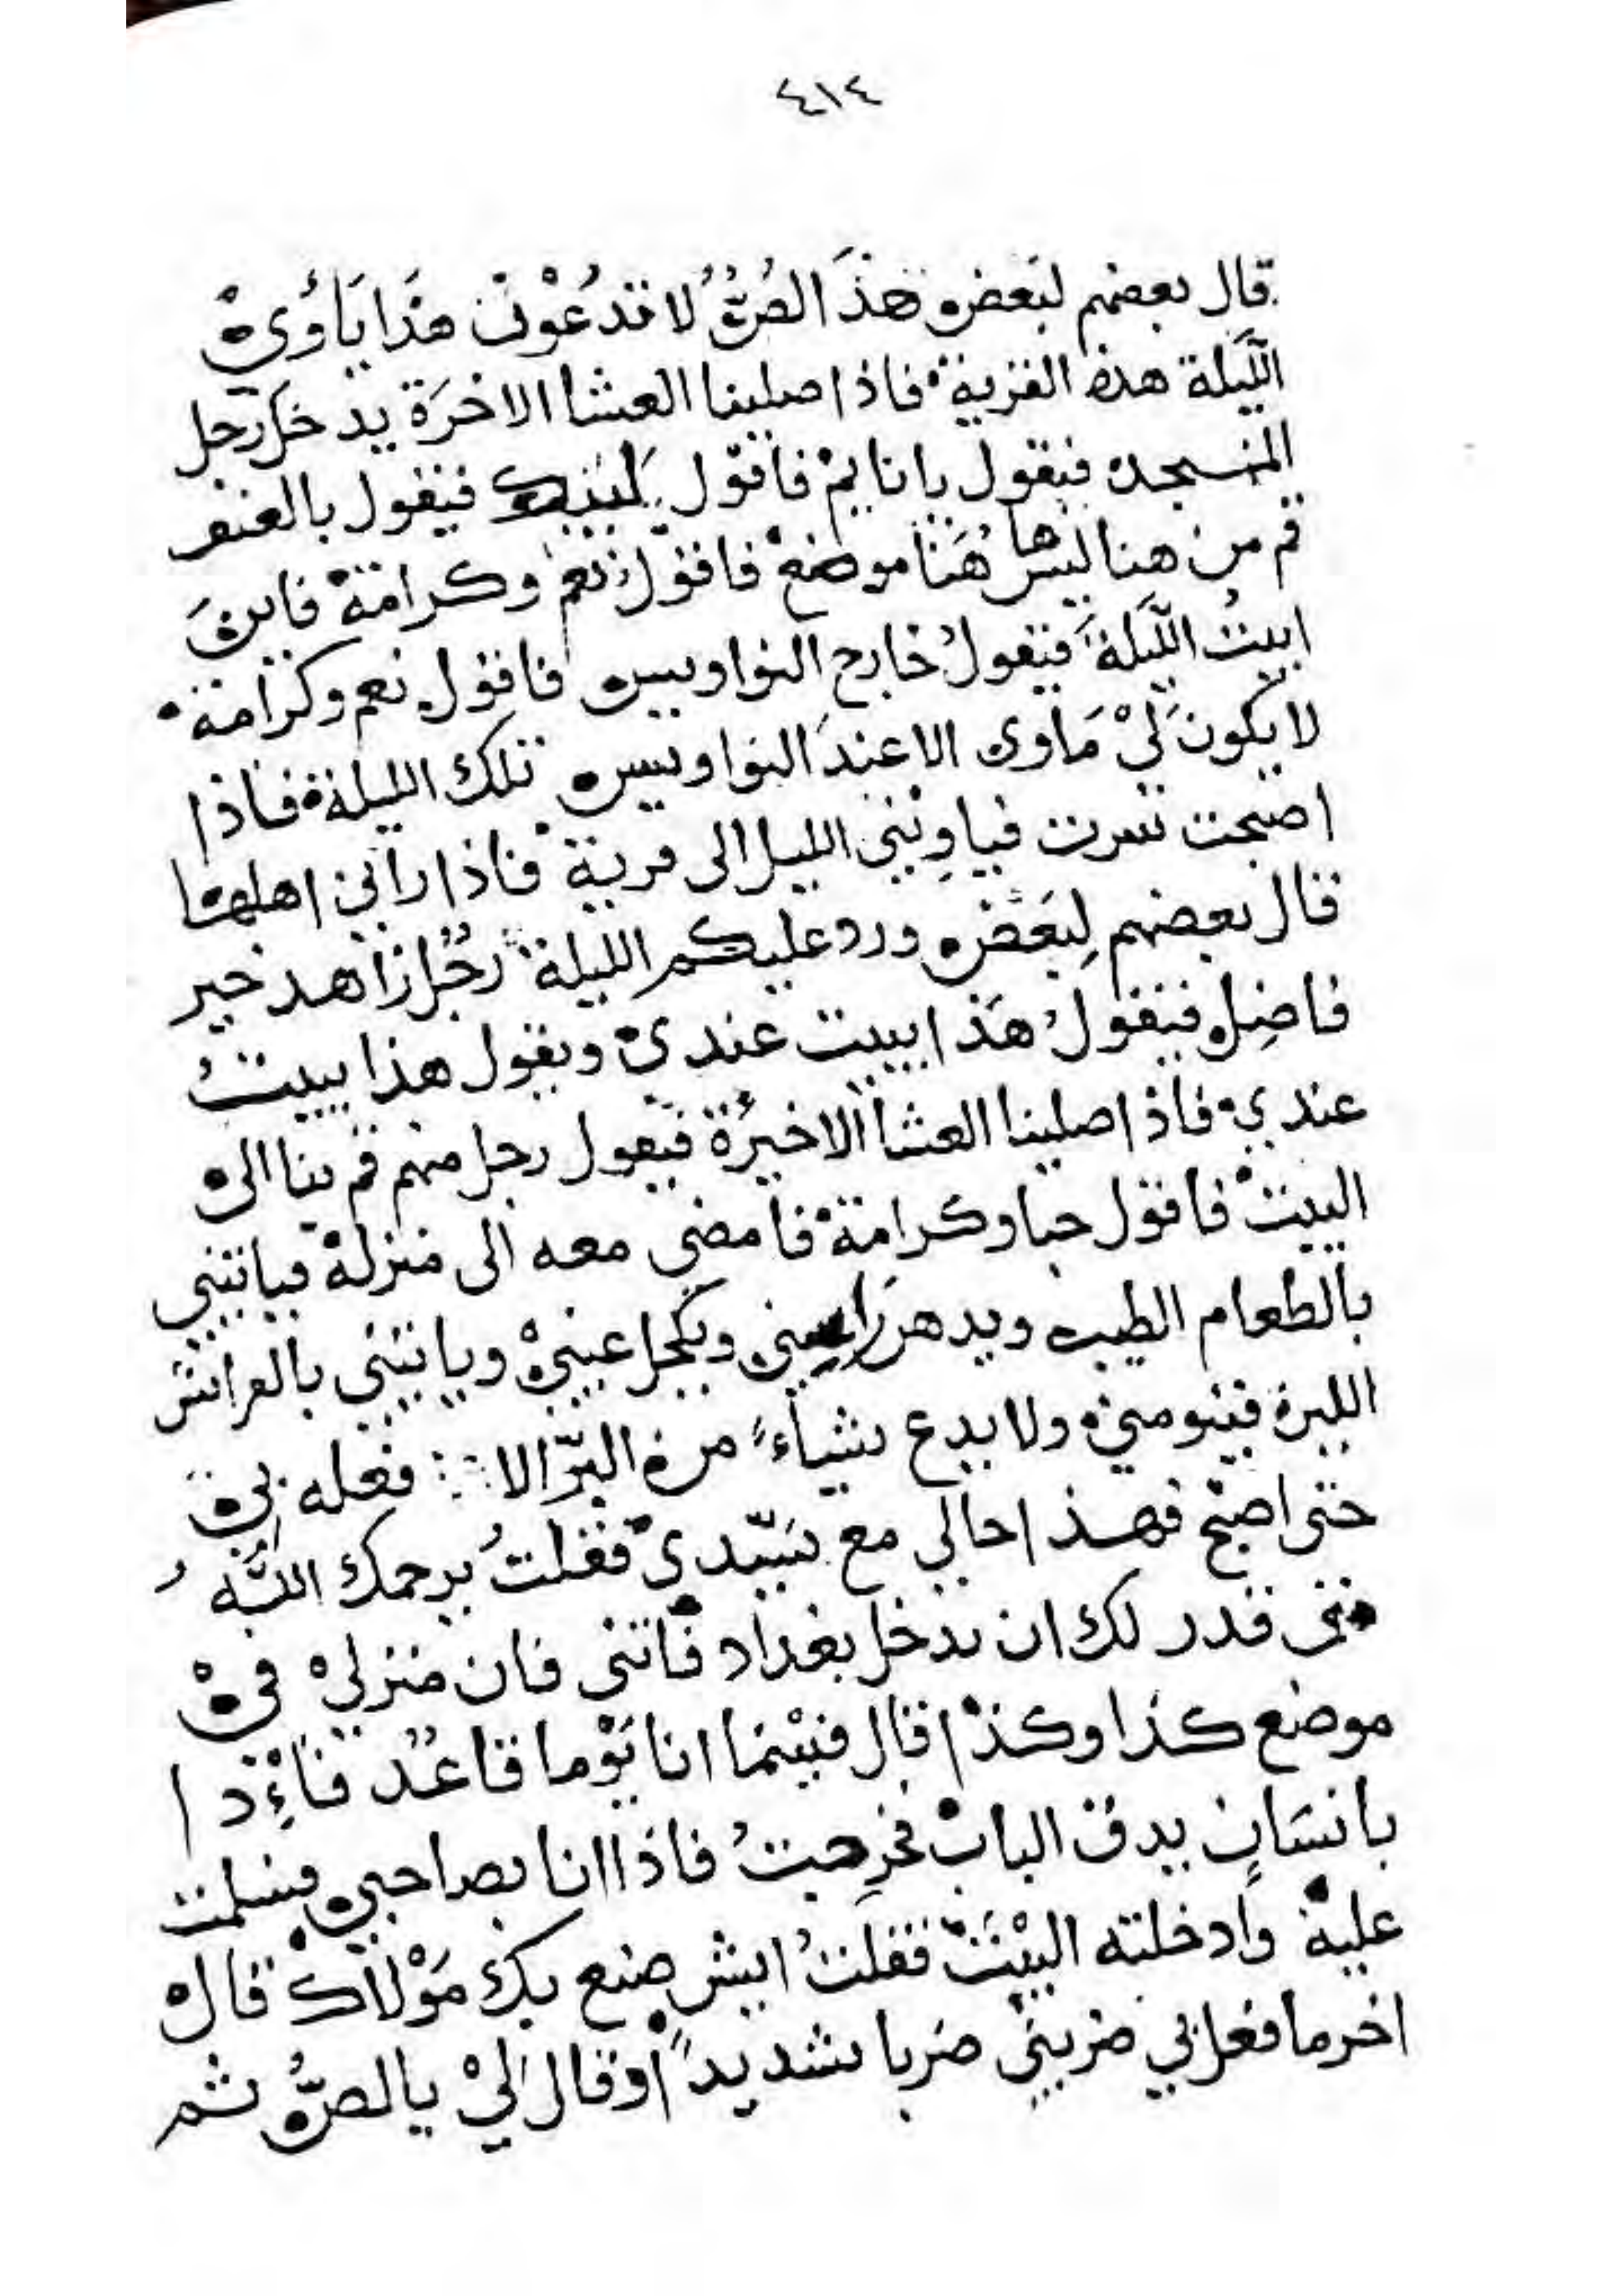 ٤١٤
قال بعضهم لبَعضٍ هذَ الصُّ لا تدعُوْن هذا يأوي
اللّيلة هذه القرية فاذا صلينا العشا الاخرَة يدخل رجل
المسجد فيقول يا نايم فاقول لبيك فيقول بالعنف
قم من هنا ليس ها هُنا موضع فاقول نعم وكرامة فاين
ابيتُ اللّيلةَ فيقولُ خارج النواويس فاقول نعم وكرامة
لا يكون لي مَاوى الا عندَ النواويس تلك الليلة فاذا
اصبحت سرت فياوِيْني الليل الى قرية فاذا راني اهلها
قال بعضهم لِبَعضٍ ورد عليكم الليلة رجُل زاهد خير
فاضِل فيقولُ هَذا يبيت عندي ويقول هذا يبيتُ
عندي فاذا صلينا العشا الاخيرة فيقول رجل منهم قم بنا الى
البيت فاقول حبا وكرامة فامضي معه الى منزله فياتيني
بالطعام الطيب ويدهن رَاسي ويكحل عيني وياتيني بالفراش
اللين فينومني ولا يدع شياءً من البِّر الا فعله بي
حتى اصبح فهذا حالي مع سَيّدي فقلتُ يرحمك اللّه
متى قدر لك ان تدخل بغداد فاتني فان منزلي في
موضع كذا وكذا قال فبيْنما انا يَوْما قاعُد فاءِذا
بانسَانٍ يدق الباب فخرِجتُ فاذا انا بصاحبي فسلمت
عليه وادخلته البَيْتَ فقلتُ ايش صنع بك مَوْلاك قال
اخر ما فعل بي ضربني ضربا شديداً وقال لي يا لصُّ ثم